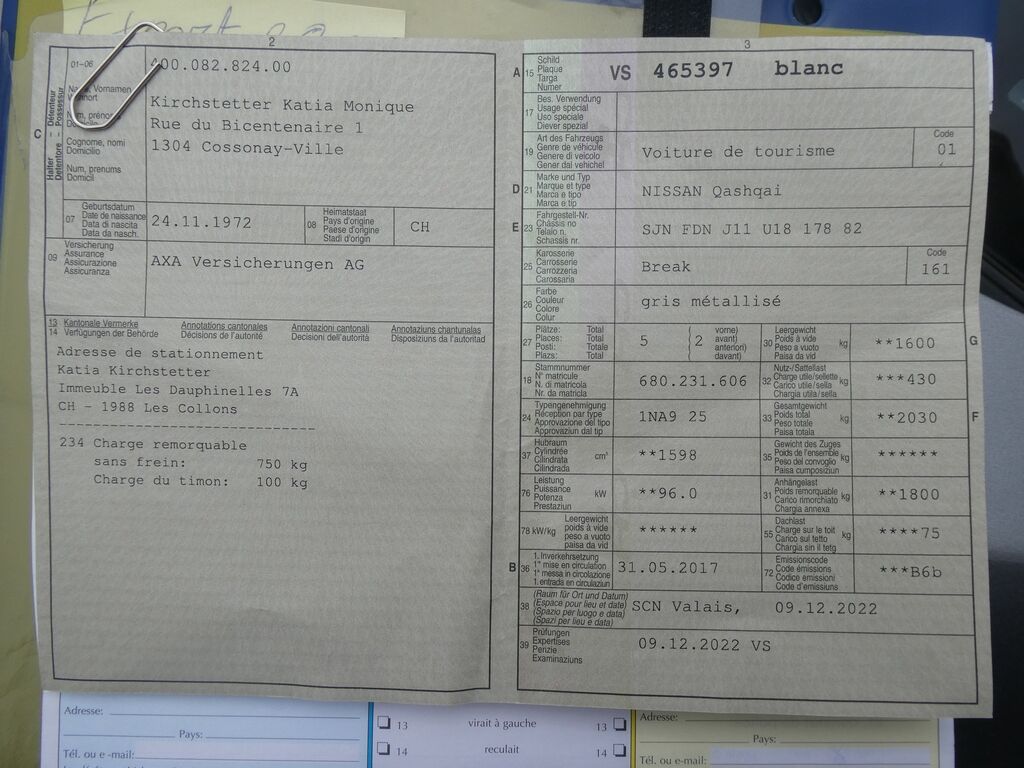 2
01-06
00.082.824.00
Name, Vornamen
Kirchstetter Katia Monique
Rue du Bicentenaire 1
1304 Cossonay-Ville
C
Halter Détenteur
Detentore Possessur
Cognome, nomi
Domicilio
Num, prenums
Domicil
07
Geburtsdatum
Date de naissance
Data di nascita
Data da nasch.
24.11.1972
08
Heimatstaat
Pays d'origine
Paese d'origine
Stadi d'origin
CH
09
Versicherung
Assurance
Assicurazione
Assicuranza
AXA Versicherungen AG
13 Kantonale Vermerke Annotations cantonales Annotazioni cantonali Annotaziuns chantunalas
14 Verfügungen der Behörde Décisions de l'autorité Decisioni dell'autorità Disposiziuns da l'autoritad
Adresse de stationnement
Katia Kirchstetter
Immeuble Les Dauphinelles 7A
CH - 1988 Les Collons
234 Charge remorquable
sans frein: 750 kg
Charge du timon: 100 kg
3
A 15
Schild
Plaque
Targa
Numer
VS 465397 blanc
17
Bes. Verwendung
Usage spécial
Uso speciale
Diever spezial
19
Art des Fahrzeugs
Genre de véhicule
Genere di veicolo
Gener dal vehichel
Voiture de tourisme
Code
01
D 21
Marke und Typ
Marque et type
Marca e tipo
Marca e tip
NISSAN Qashqai
E 23
Fahrgestell-Nr.
Châssis no
Telaio n.
Schassis nr.
SJN FDN J11 U18 178 82
25
Karosserie
Carrosserie
Carrozzeria
Carossaria
Break
Code
161
26
Farbe
Couleur
Colore
Colur
gris métallisé
27
Plätze: Total
Places: Total
Posti: Totale
Plazs: Totale
5
( 2
vorne)
avant)
anteriori)
davant)
30
Leergewicht
Poids à vide
Peso a vuoto
Paisa da vid
kg
**1600
G
18
Stammnummer
N° matricule
N. di matricola
Nr. da matricla
680.231.606
32
Nutz-/Sattellast
Charge utile/sellette
Carico utile/sella
Chargia utila/sella
kg
***430
24
Typengenehmigung
Réception par type
Approvazione del tipo
Approvaziun dal tip
1NA9 25
33
Gesamtgewicht
Poids total
Peso totale
Paisa totala
kg
**2030
F
37
Hubraum
Cylindrée
Cilindrata
Cilindrada
cm³
**1598
35
Gewicht des Zuges
Poids de l'ensemble
Peso del convoglio
Paisa cumposiziun
kg
******
76
Leistung
Puissance
Potenza
Prestaziun
kW
**96.0
31
Anhängelast
Poids remorquable
Carico rimorchiato
Chargia annexa
kg
**1800
78 kW/kg
Leergewicht
poids à vide
peso a vuoto
paisa da vid
******
55
Dachlast
Charge sur le toit
Carico sul tetto
Chargia sin il tetg
kg
****75
B 36
1. Inverkehrsetzung
1re mise en circulation
1a messa in circolazione
1. entrada en circulaziun
31.05.2017
72
Emissionscode
Code émissions
Codice emissioni
Code d'emissiuns
***B6b
38
(Raum für Ort und Datum)
(Espace pour lieu et date)
(Spazio per luogo e data)
(Spazi per lieu e data)
SCN Valais, 09.12.2022
39
Prüfungen
Expertises
Perizie
Examinaziuns
09.12.2022 VS
Adresse:
Pays:
Tél. ou e-mail:
13 virait à gauche 13
14 reculait 14
Adresse:
Pays:
Tél. ou e-mail: